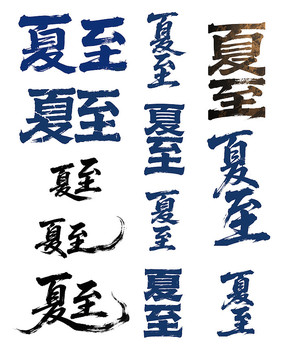 夏至
夏至
夏至
夏至
夏至
夏至
夏至
夏至
夏至
夏至
夏至
夏至